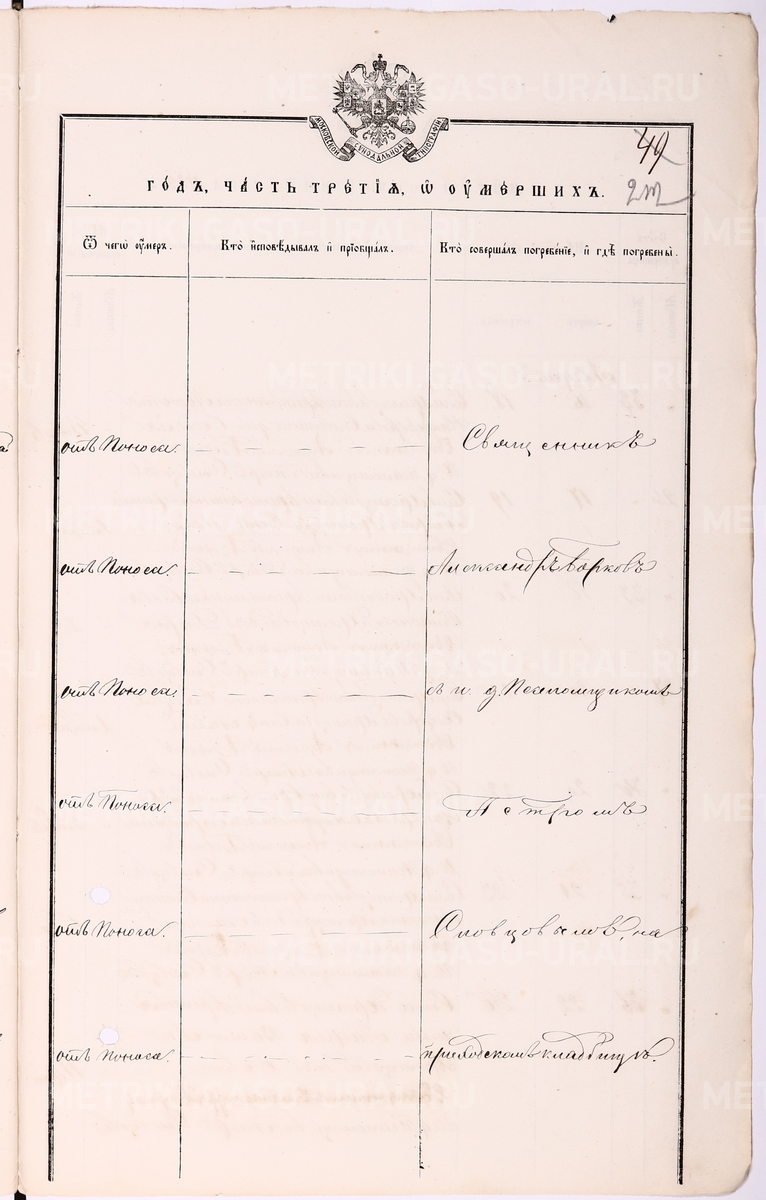 МОСКОВСКОЙ СѴНОДАЛЬНОЙ ТИПОГРАФІИ
49
ГО́ДЪ, ЧА́СТЬ ТРЕ́ТІѦ, Ѡ ОУ҆МЕ́РШИХЪ.
Ѿ чегѡ̀ оу҆́меръ. Кто̀ и҆сповѣ́дывалъ и҆ прїѡбща́лъ. Кто̀ соверша́лъ погребе́нїе, и҆ гдѣ̀ погребены̀.
отъ Поноса. Священникъ
отъ Поноса. Александръ
отъ Поноса. и. д. Псаломщикомъ
отъ Поноса. Петромъ
отъ Поноса. Словцовымъ, на
отъ Поноса. приходскомъ кладбищѣ.
METRIKI.GASO-URAL.RU